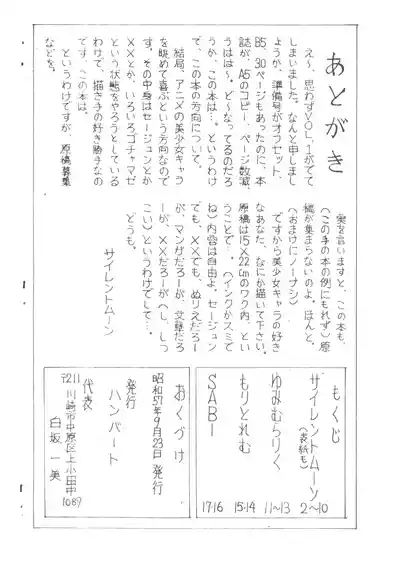 あとがき
え〜、思わずVOL.1がでて
しまいました。なんと申しまし
ょうか、準備号がオフセット、
B5、30ページもあったのに、本
誌が、A5のコピー、ページ数減、
うはは〜、ど〜なってるのだろ
うか、この本は…。というわけ
で、この本の方向について。
結局、アニメの美少女キャラ
を眺めて喜ぶという方向なので
す。その中身はセージュンとか
××とか、いろいろゴチャマゼ
という状態をやろうとしている
わけで、描き手の好き勝手なの
です、この本は。
というわけですが、原稿募集
などを。
実を言いますと、この本も、
(この手の本の例にもれず)原
稿が集まらないのよ。ほんと。
(おまけにノーナシ)
ですから美少女キャラの好き
なあなた、なにか描いて下さい。
原稿は15×22cmのワク内、とい
うことで…。(インクかスミで
ね)内容は自由よ。セージュン
でも、××でも、ぬりえだろー
が、マンガだろーが、文章だろ
ーが、××だろーが(し、しつ
こい)というわけでして…。
どうも。
サイレントムーン
もくじ
サイレントムーン
(表紙も) 2〜10
ゆみむらりく 11〜13
もりとれむ 15・14
SABI 17・16
おくづけ
昭和57年9月23日 発行
発行
ハンバート
代表
〒211
川崎市中原区上小田中
1087
白坂 一美